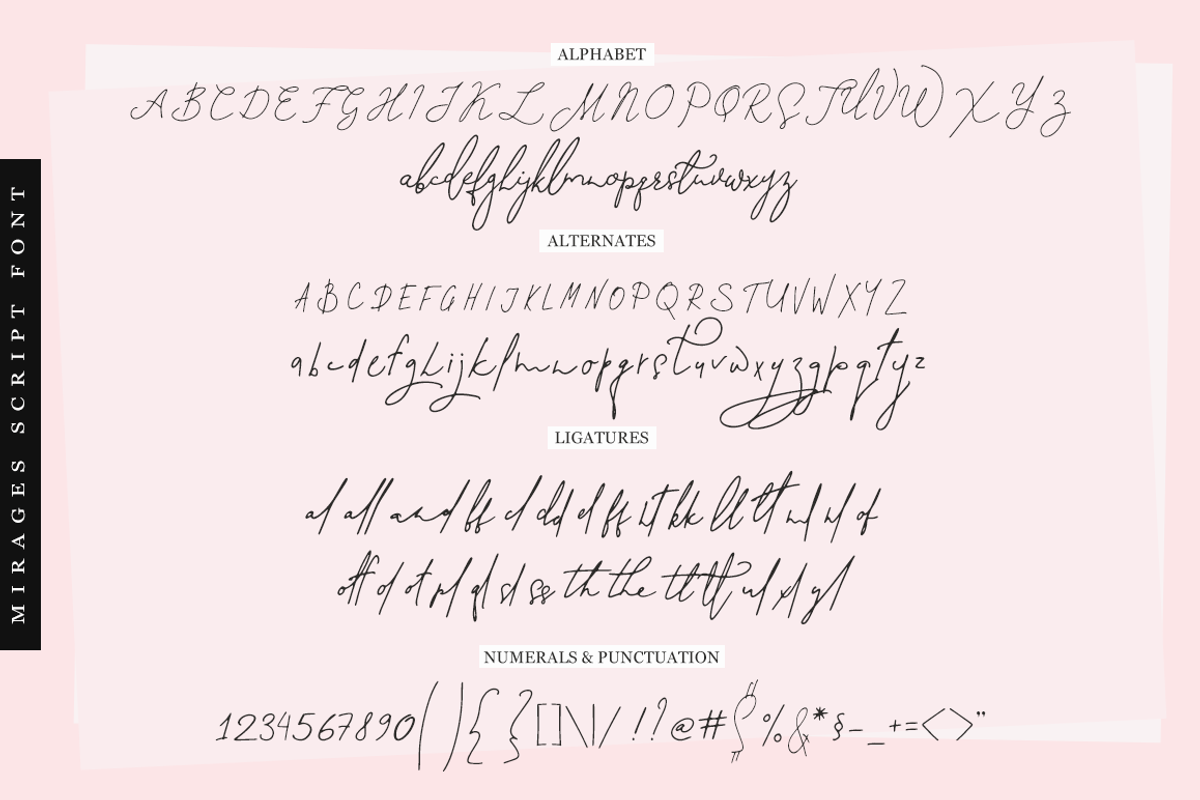 MIRAGES SCRIPT FONT
ALPHABET
A B C D E F G H I J K L M N O P Q R S T U V W X Y Z
abcdefghijklmnopqrstuvwxyz
ALTERNATES
A B C D E F G H I J K L M N O P Q R S T U V W X Y Z
a b c d e f g h i j k l m n o p q r s t u v w x y z g p q t y z
LIGATURES
al all and bb cl dd el ff it kk ll tt ml nl of
off ol ot pl ql sl ss th the tl tt ul xl yl
NUMERALS & PUNCTUATION
1234567890( ) { } [ ] \ | / ! ? @ # $ % & * § - _ + = < > "